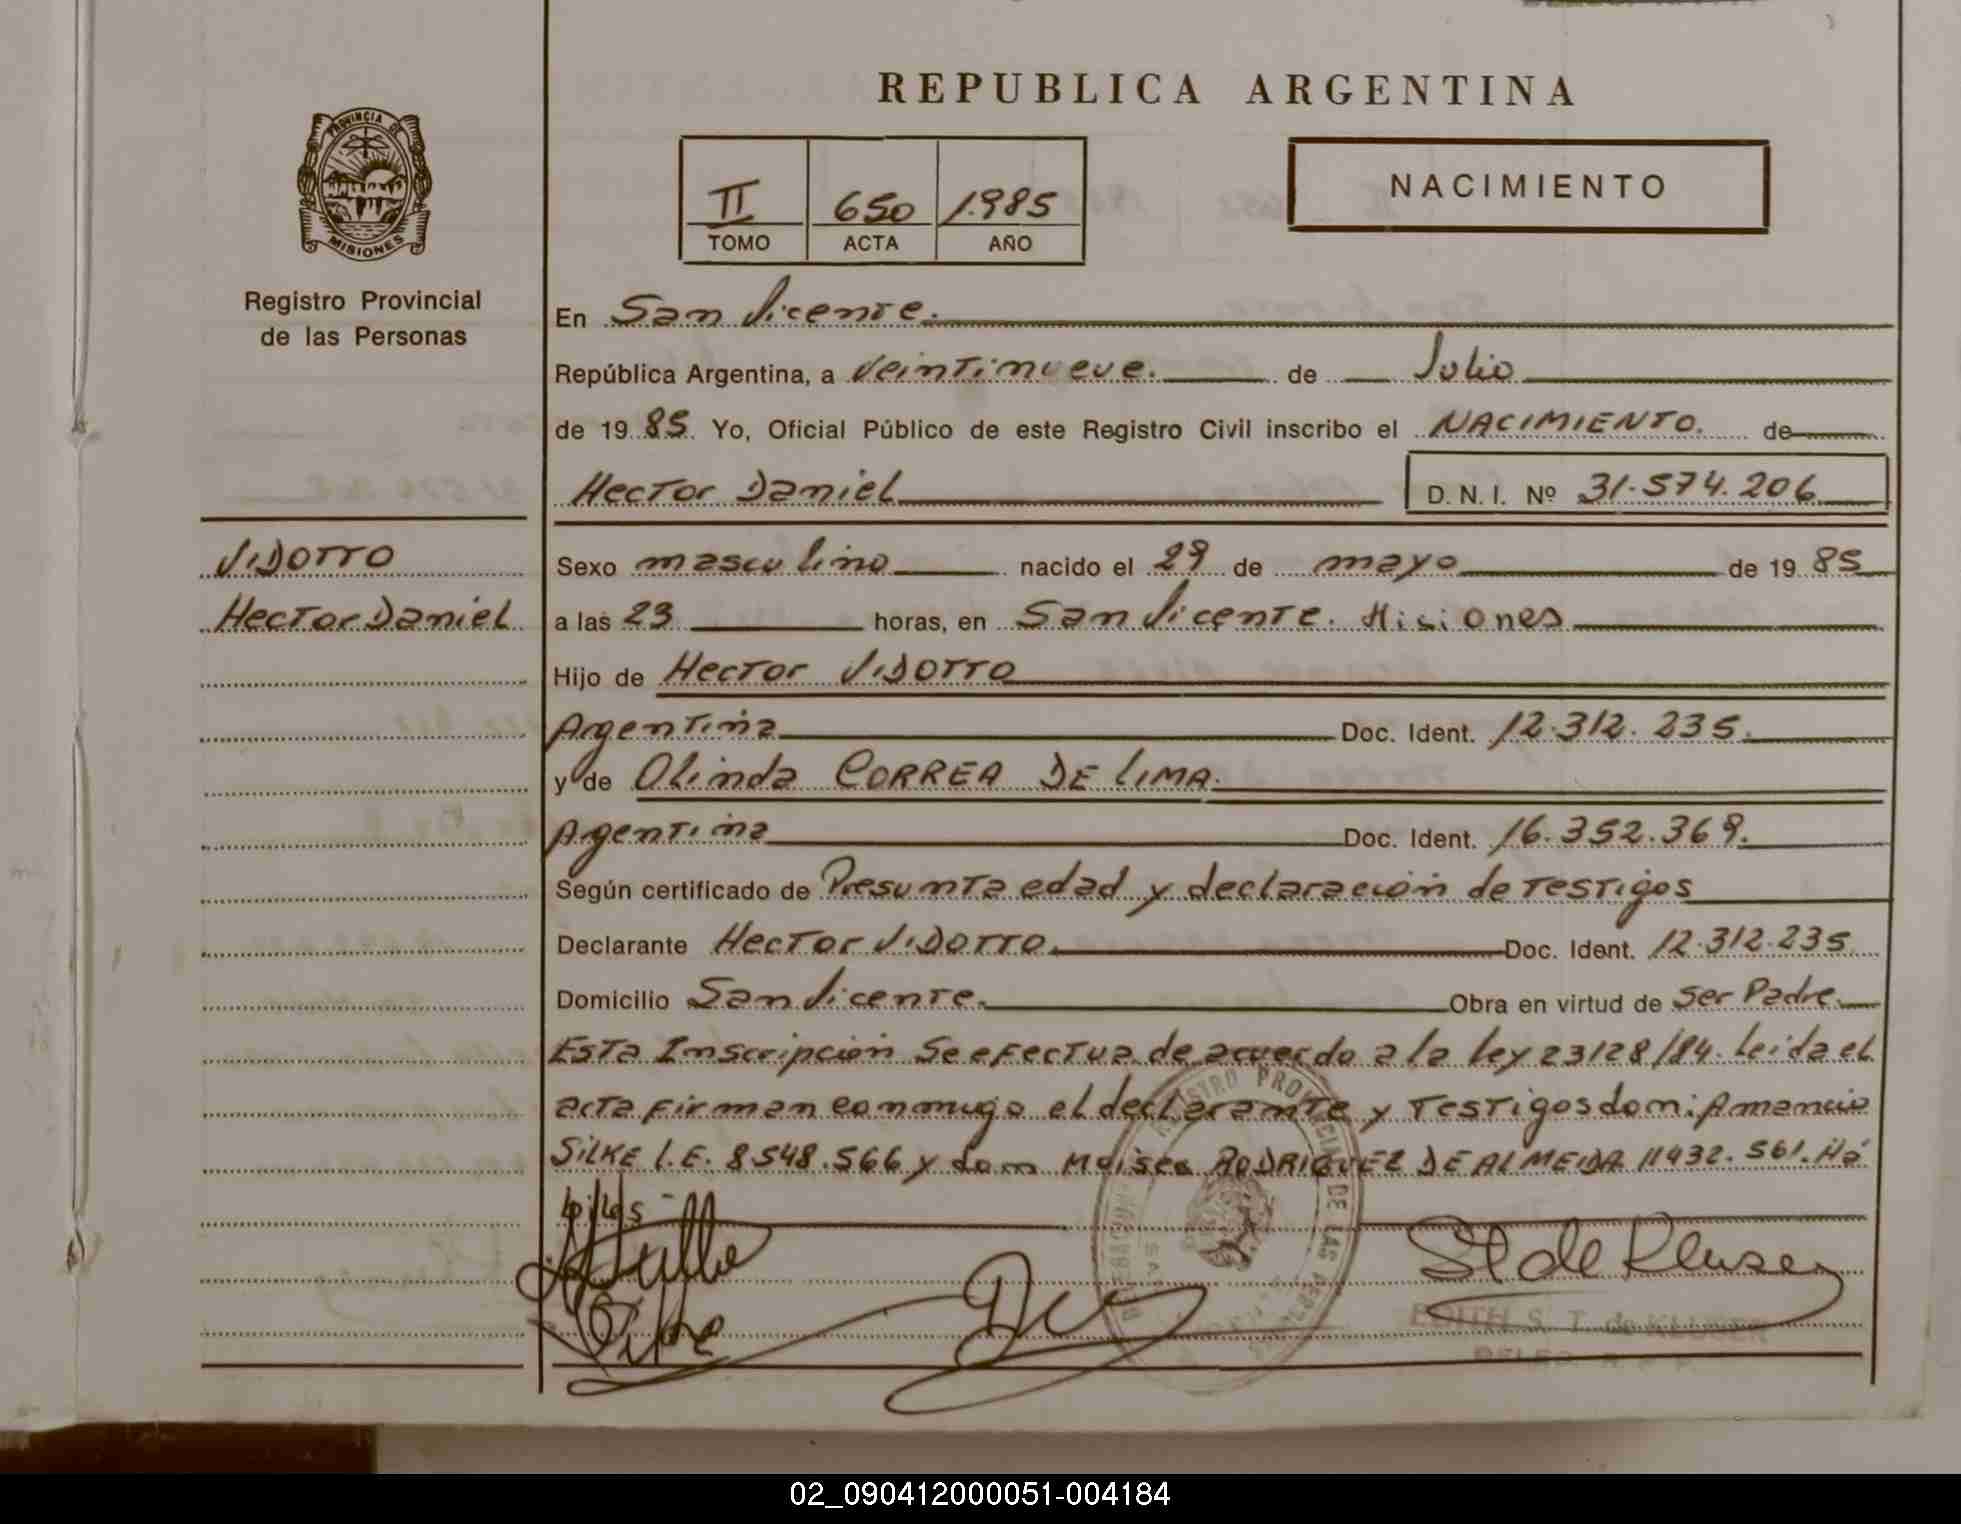 REPUBLICA ARGENTINA
PROVINCIA DE
MISIONES
Registro Provincial
de las Personas
II 650 1.985
TOMO ACTA AÑO
NACIMIENTO
En San Vicente.
República Argentina, a Veintinueve. de Julio
de 19 85 Yo, Oficial Público de este Registro Civil inscribo el NACIMIENTO. de
Hector Daniel D. N. I. Nº 31.574.206
VIDOTTO
Hector Daniel
Sexo masculino nacido el 29 de mayo de 19 85
a las 23 horas, en San Vicente. Misiones
Hijo de Hector VIDOTTO
Argentina Doc. Ident. 12.312.235.
y de Olinda CORREA DE LIMA.
Argentina Doc. Ident. 16.352.369.
Según certificado de Presunta edad y declaración de Testigos
Declarante Hector VIDOTTO. Doc. Ident. 12.312.235.
Domicilio San Vicente. Obra en virtud de Ser Padre.
Esta Inscripción Se efectua de acuerdo a la ley 23128/84. Leida el
acta firman conmigo el declarante y Testigos don: Amancio
SILKE L.E. 8548.566 y don Moises RODRIGUEZ DE ALMEIDA 11432.561. Há
biles-
EDITH S. T. de KLUSEN
02_090412000051-004184